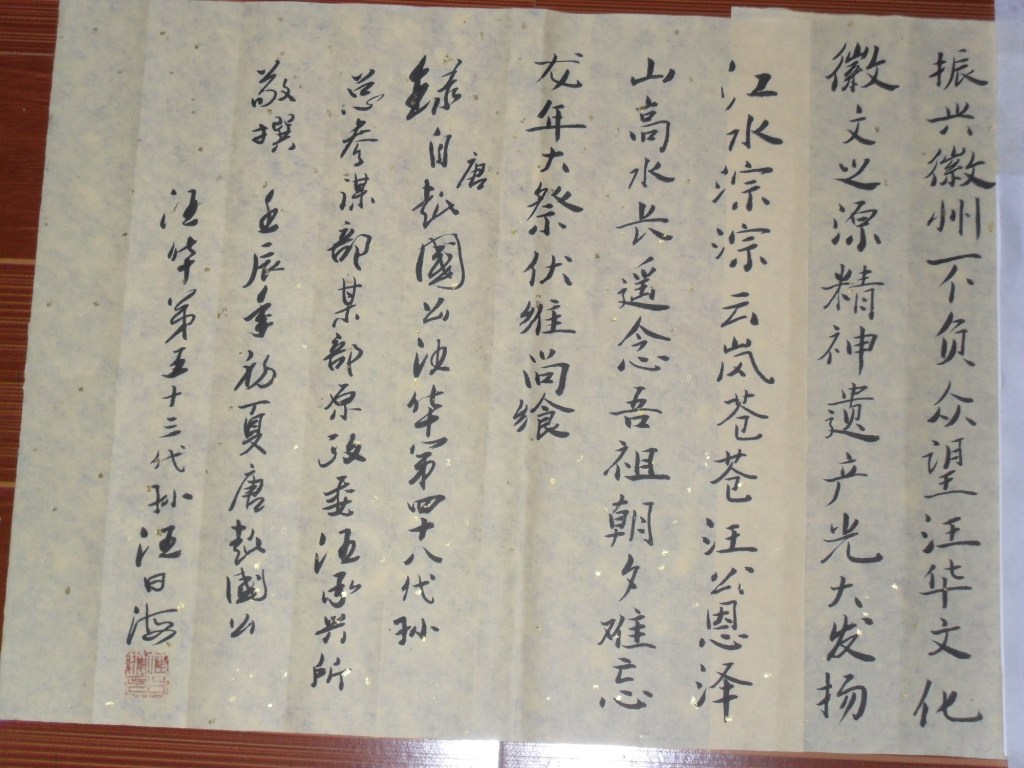 振兴徽州不负众望汪华文化
徽文之源精神遗产光大发扬
江水淙淙云岚苍苍汪公恩泽
山高水长遥念吾祖朝夕难忘
龙年大祭伏维尚飨
录自唐越国公汪华第四十八代孙
总参谋部某部原政委汪承兴所
敬撰 壬辰年初夏唐越国公
汪华第五十三代孙汪日海